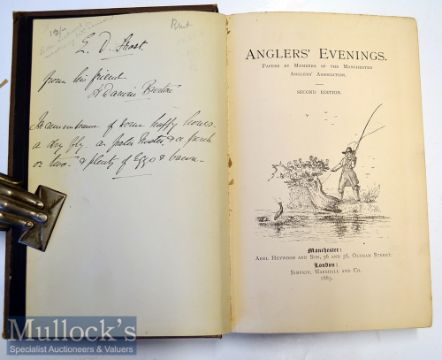 12/-
E. D. Frost
from his friend
In remembrance of some happy hours
a dry fly
or two & plenty of Eggs & bacon
ANGLERS' EVENINGS.
PAPERS BY MEMBERS OF THE MANCHESTER
ANGLERS' ASSOCIATION.
SECOND EDITION.
Manchester:
ABEL HEYWOOD AND SON, 56 AND 58, OLDHAM STREET.
London:
SIMPKIN, MARSHALL AND CO.
1883.
Mullock's
Specialist Auctioneers & Valuers